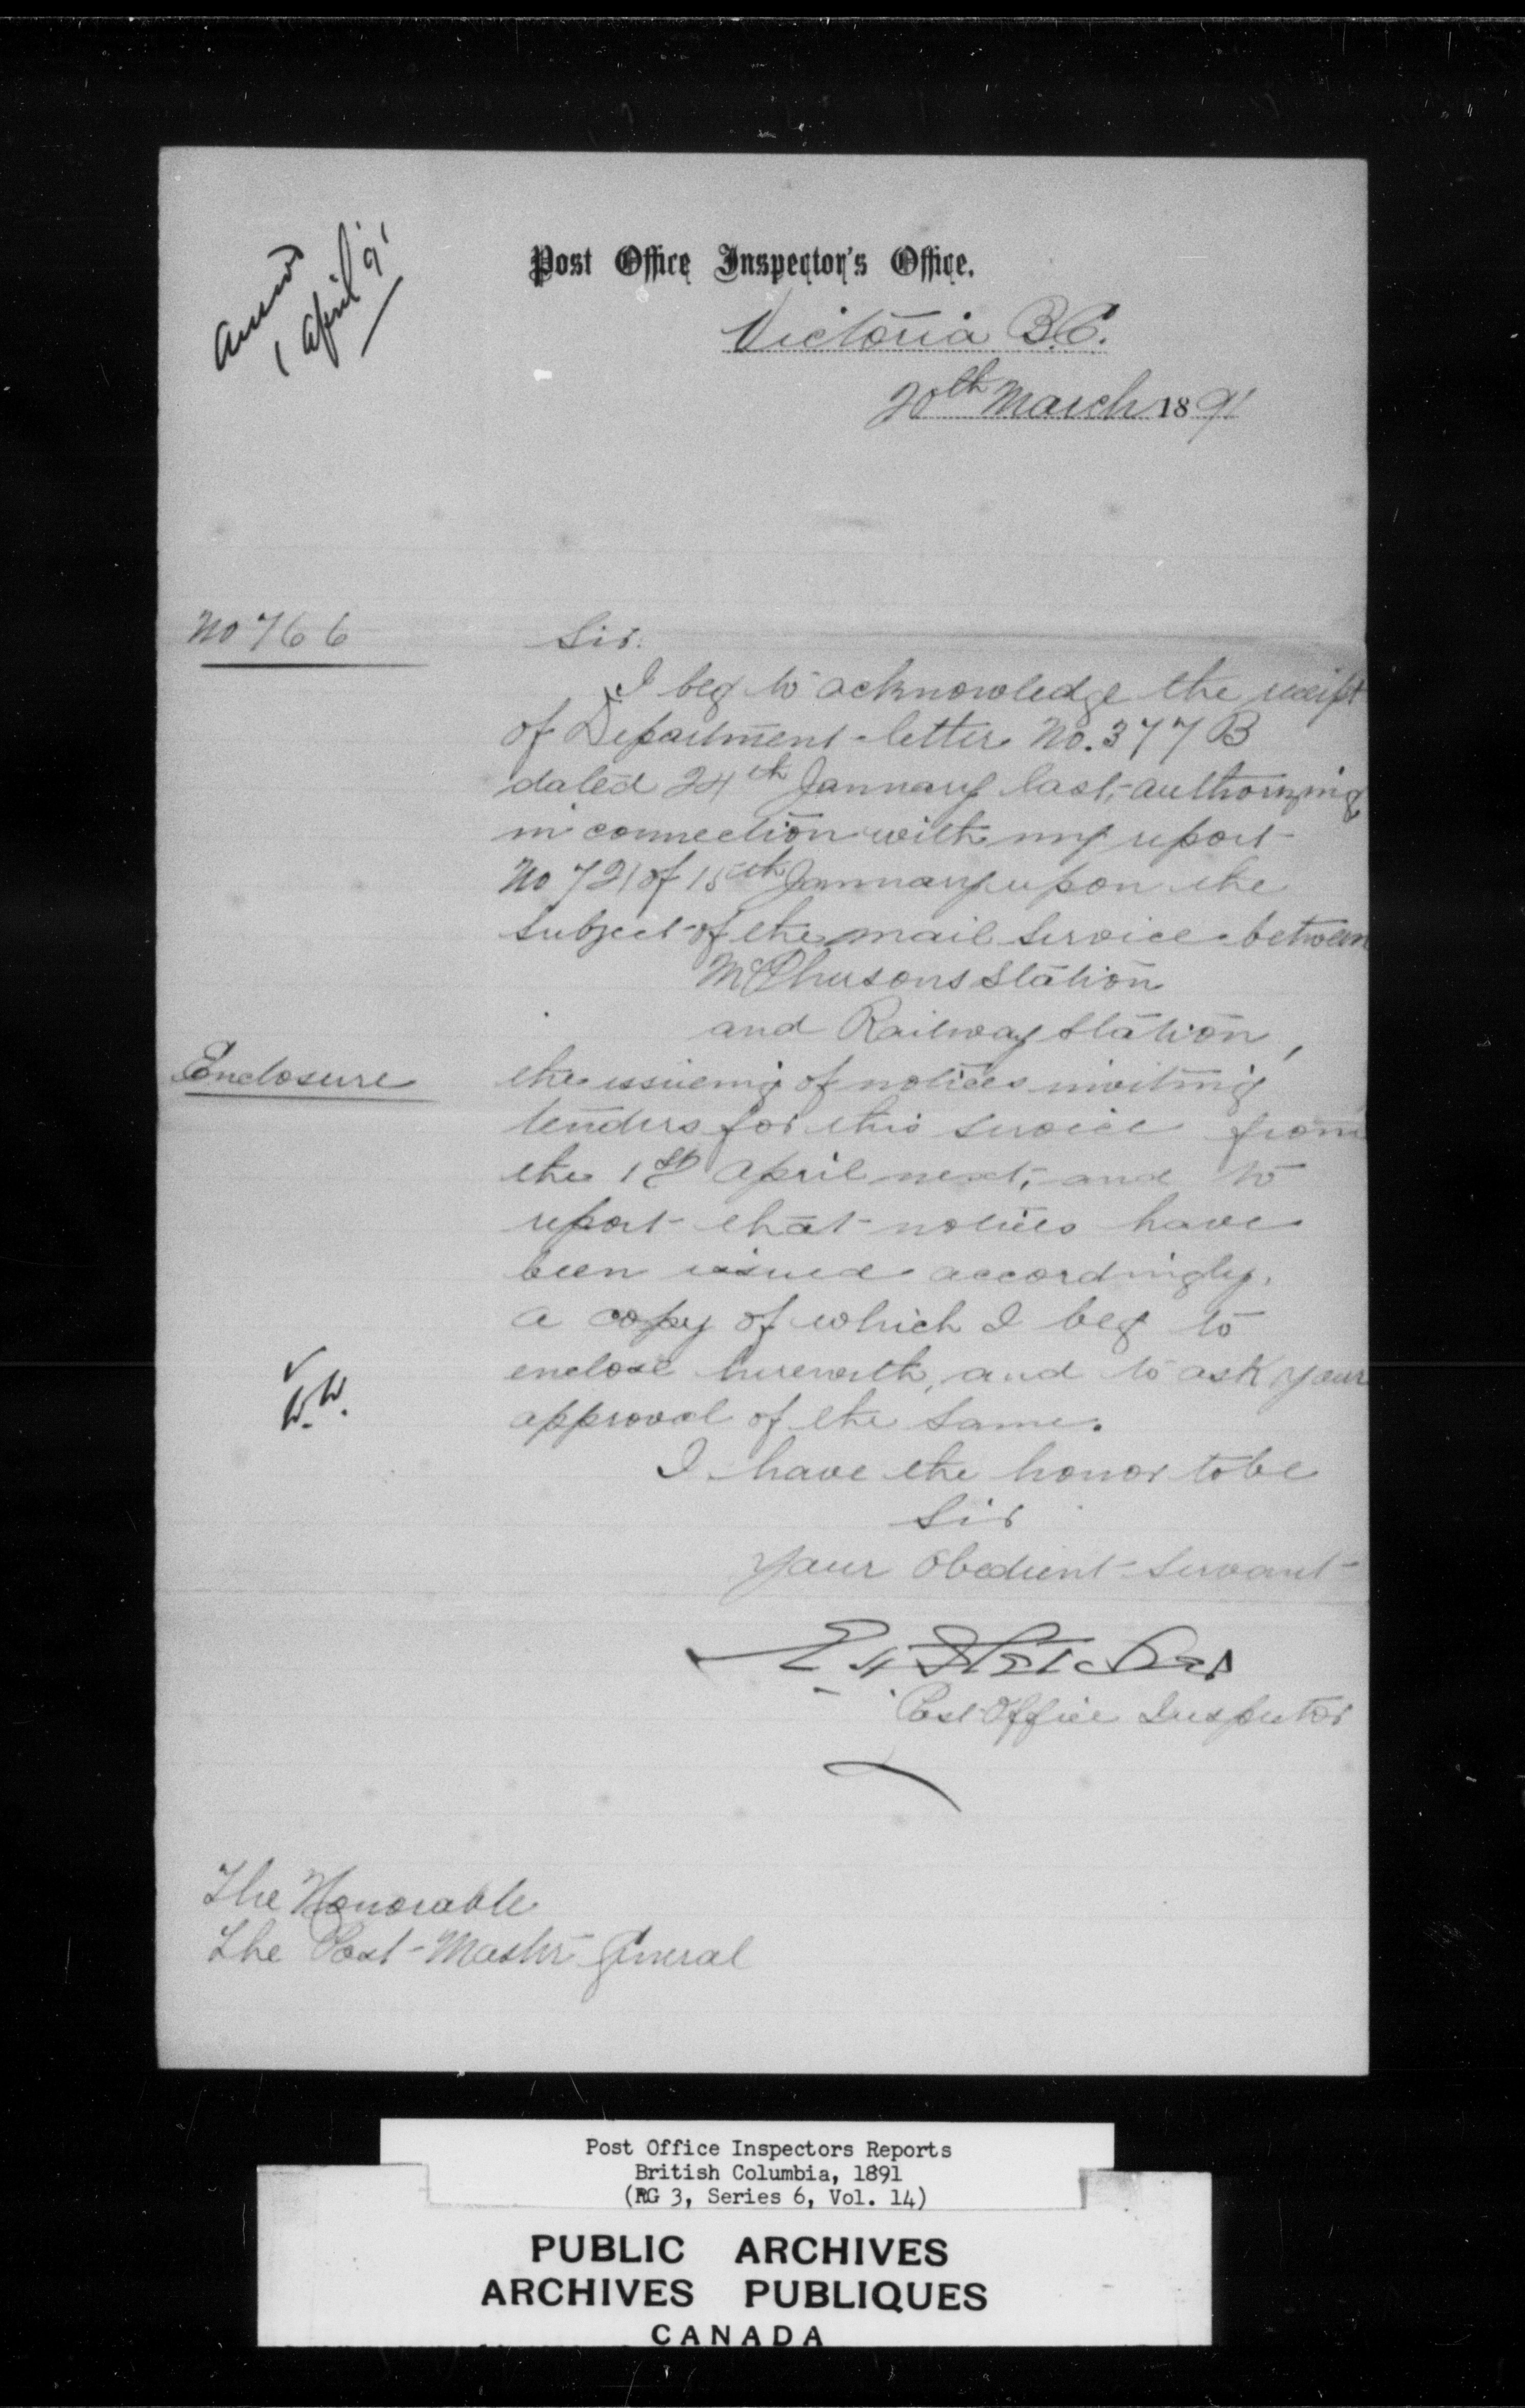 Answd
1 April '91
Post Office Inspector's Office.
Victoria B.C.
20th March 1891
No 766
Sir.
I beg to acknowledge the receipt
of Department letter No. 377 B
dated 24th January last, authorizing
in connection with my report
No 721 of 15th January upon the
subject of the mail service between
McPhersons Station
and Railway Station,
Enclosure
the issuing of notices inviting
tenders for this service from
the 1st April next, and to
report that notices have
been issued accordingly.
a copy of which I beg to
enclose herewith, and to ask your
approval of the same.
W.W.
I have the honor to be
Sir
Your Obedient Servant
E H Fletcher
Post Office Inspector
The Honorable
The Post-Master General
Post Office Inspectors Reports
British Columbia, 1891
(RG 3, Series 6, Vol. 14)
PUBLIC ARCHIVES
ARCHIVES PUBLIQUES
CANADA